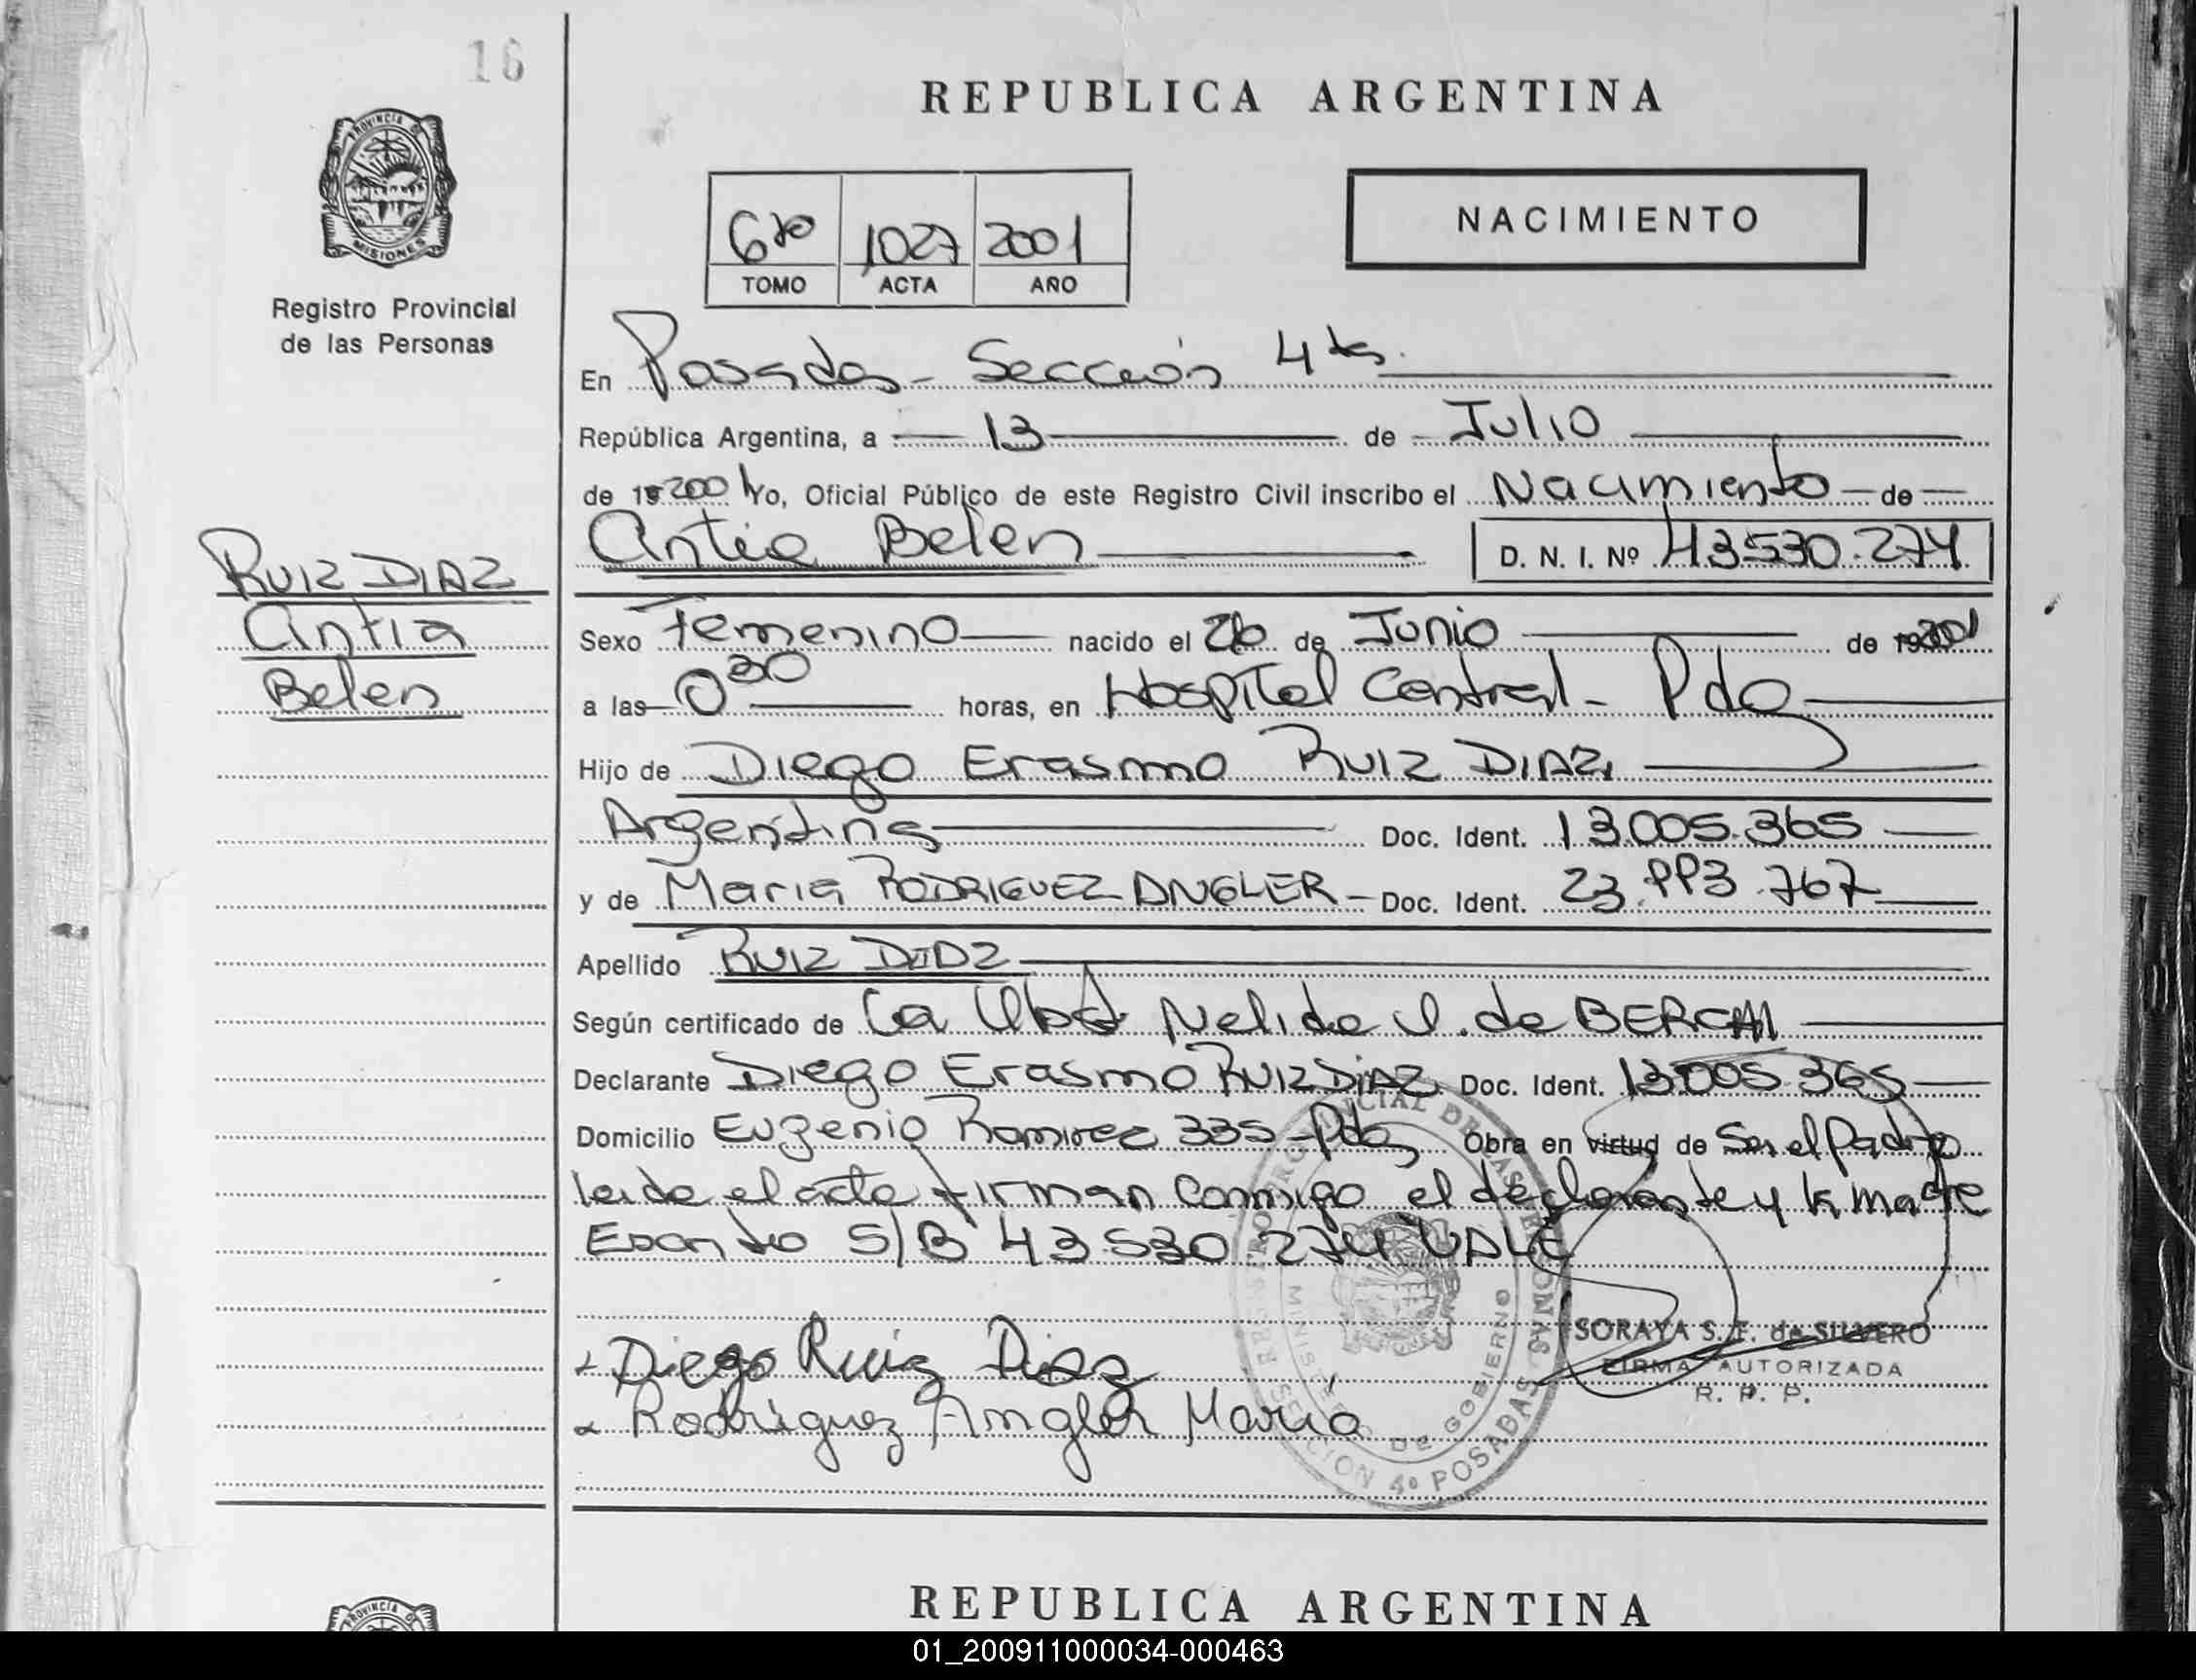 16
REPUBLICA ARGENTINA
PROVINCIA DE
MISIONES
Registro Provincial
de las Personas
6to 1027 2001
TOMO ACTA AÑO
NACIMIENTO
En Posadas - Sección 4ta.
República Argentina, a 13 de Julio
de 19 2001 Yo, Oficial Público de este Registro Civil inscribo el Nacimiento de
Antia Belen D. N. I. Nº 43530.274
RUIZ DIAZ
Antia
Belen
Sexo Femenino nacido el 26 de Junio de 2001
a las 0 30 horas, en Hospital Central - Pdas
Hijo de Diego Erasmo RUIZ DIAZ,
Argentina Doc. Ident. 13.005.365
y de Maria RODRIGUEZ ANGLER - Doc. Ident. 23.993.767
Apellido RUIZ DIAZ
Según certificado de La Obst Nelida de
Declarante Diego Erasmo RUIZ DIAZ Doc. Ident. 13.005.365
Domicilio Eugenio Ramirez 335 - Pdas Obra en virtud de Ser el Padre
leida el acta firman conmigo el declarante y la madre
S/B 43.530.274 VALE
Diego Ruiz Diaz
Rodriguez Angler María
SORAYA S. F. de SILVERO
FIRMA AUTORIZADA
R. P. P.
REGISTRO PROVINCIAL DE LAS PERSONAS
MINISTERIO DE GOBIERNO
SECCION 4º POSADAS
REPUBLICA ARGENTINA
PROVINCIA DE
01_200911000034-000463